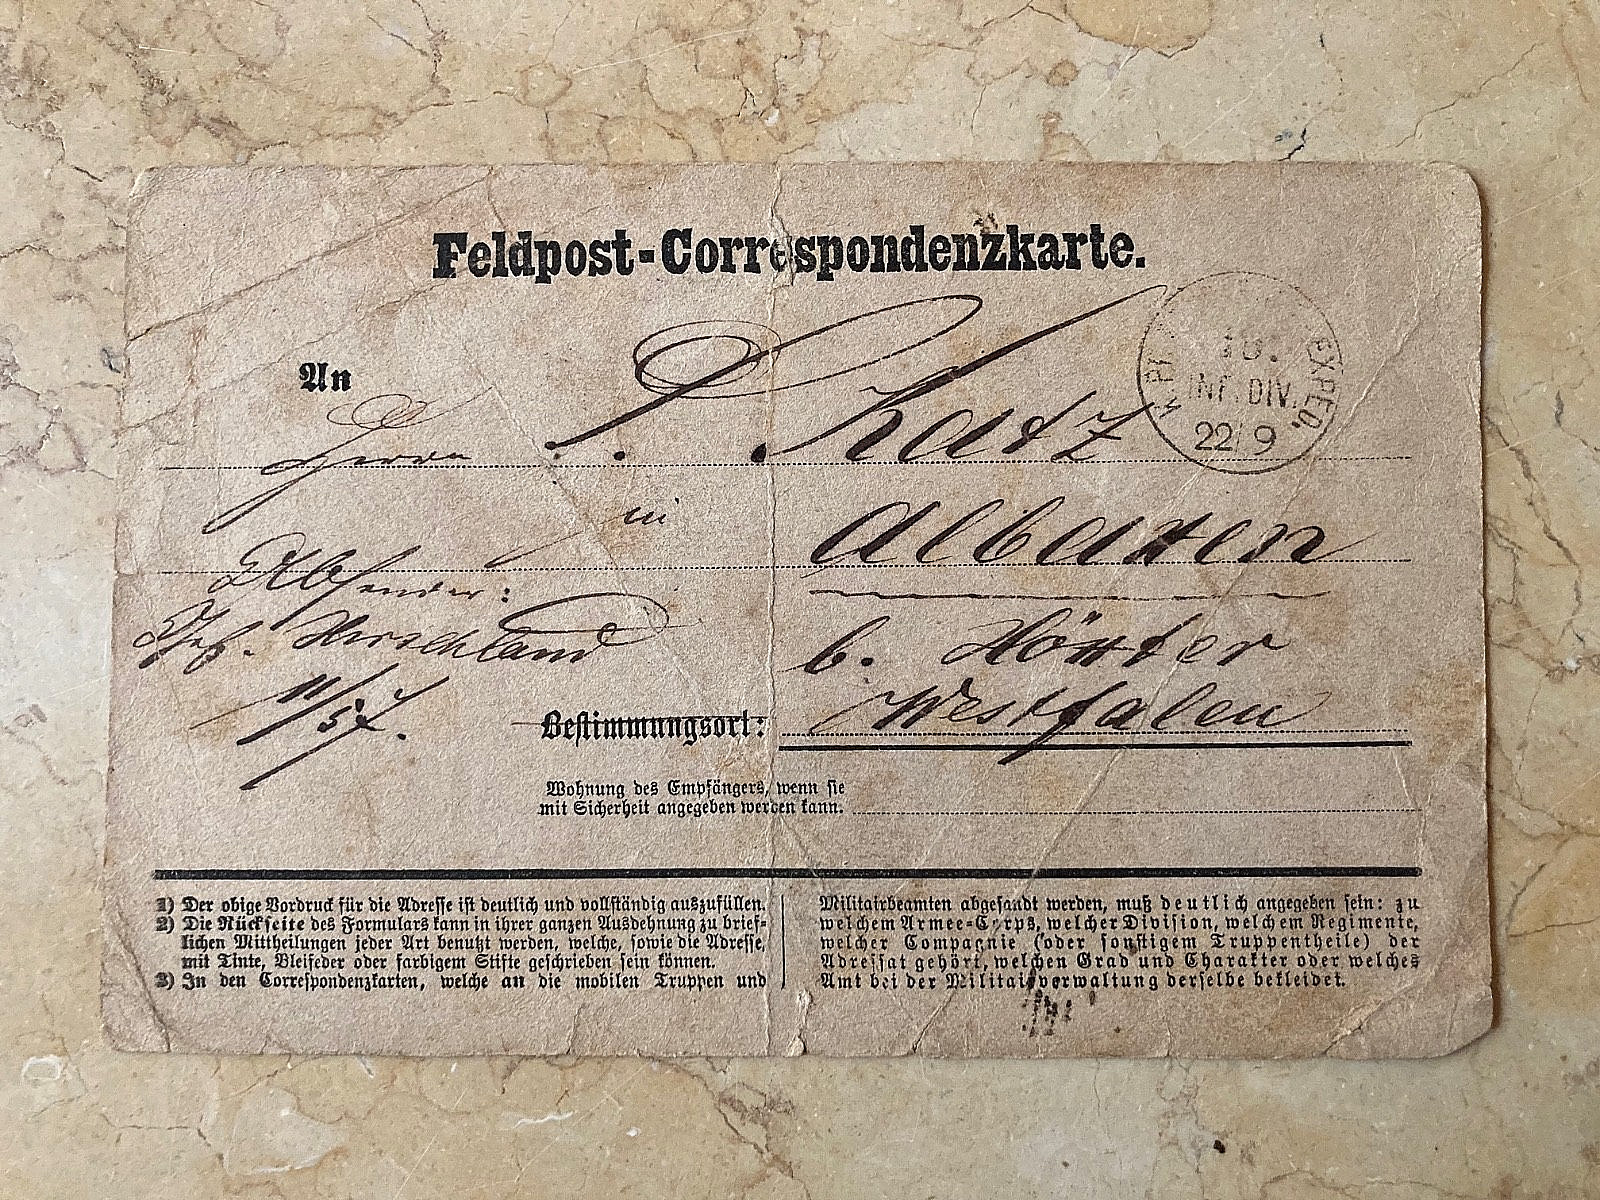 Feldpost-Correspondenzkarte.
An
Herrn S. Katz
in Albaxen
Absender:
Gef. Hirschland
11/57.
b. Höxter
Bestimmungsort: Westfalen
Wohnung des Empfängers, wenn sie
mit Sicherheit angegeben werden kann.
EXPED.
INF. DIV.
22/9
1) Der obige Vordruck für die Adresse ist deutlich und vollständig auszufüllen.
2) Die Rückseite des Formulars kann in ihrer ganzen Ausdehnung zu brief-
lichen Mittheilungen jeder Art benutzt werden, welche, sowie die Adresse,
mit Tinte, Bleifeder oder farbigem Stifte geschrieben sein können.
3) In den Correspondenzkarten, welche an die mobilen Truppen und
Militairbeamten abgesandt werden, muß deutlich angegeben sein: zu
welchem Armee-Corps, welcher Division, welchem Regimente,
welcher Compagnie (oder sonstigem Truppentheile) der
Adressat gehört, welchen Grad und Charakter oder welches
Amt bei der Militairverwaltung derselbe bekleidet.